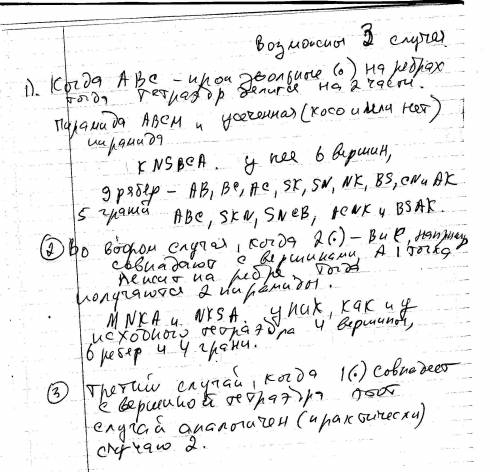 Возможны 3 случая
1). Когда ABC - произвольные (·) на ребрах
тогда тетраэдр делится на 2 части.
Пирамида ABCM и усеченная (косо или нет)
пирамида
KNSBCA. у нее 6 вершин,
9 рёбер - AB, BC, AC, SK, SN, NK, BS, CN и AK
5 граней ABC, SKN, SNCB, ACNK и BSAK.
2 Во втором случае, когда 2(·) - B и C, например
совпадают с вершинами, A точка
лежит на ребре тогда
получаются 2 пирамиды.
MNKA и NKSA. у них, как и у
исходного тетраэдра 4 вершины,
6 ребер и 4 грани.
3 Третий случай, когда 1(·) совпадает
с вершиной тетраэдра этот
случай аналогичен (практически)
случаю 2.